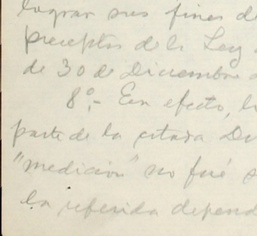 lograr sus fines d
preceptos de la Ley
de 30 de Diciembre
8º.- En efecto, l
parte de la citada D
"medición" no fué s
la referida depend